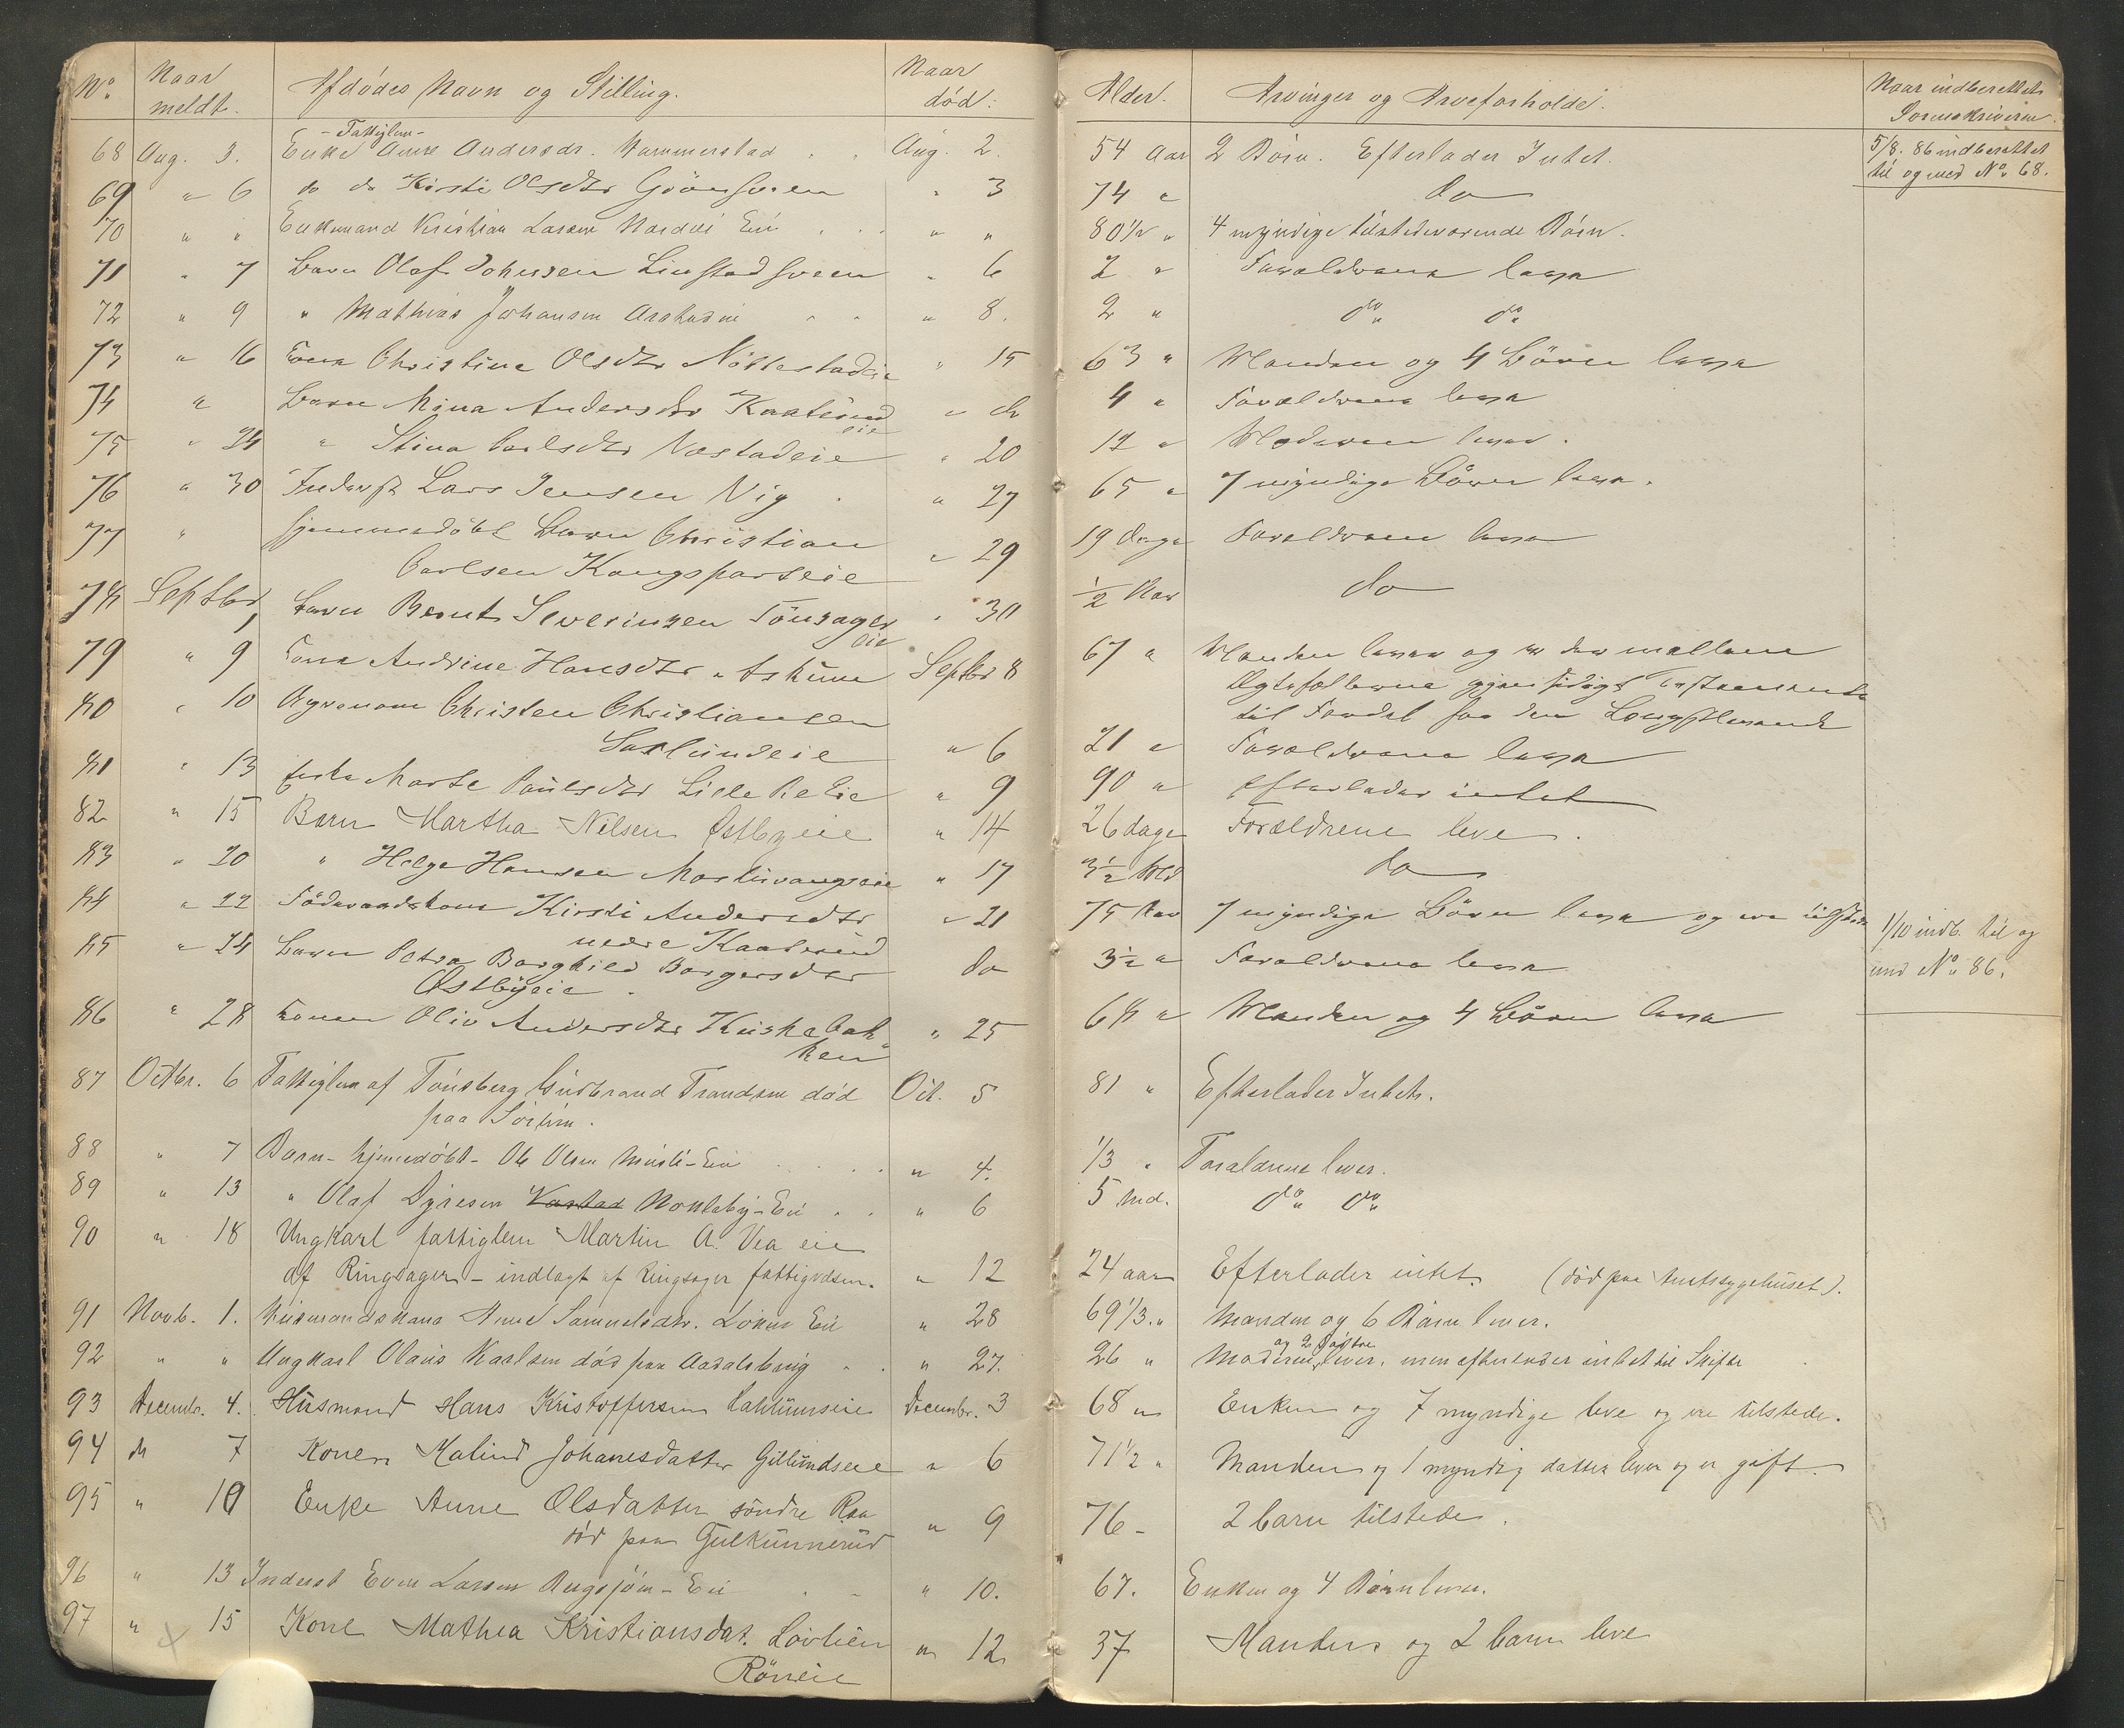 No. Naar meldt. Afdödes Navn og Stilling. Naar död. Alder. Arvinger og Arveforholde. Naar indberettet Sorenskriveren
68 Aug. 3. Enke -Fattiglem- Anne Andersdr. Hammerstad Aug. 2. 54 Aar 2 Börn. Efterlader Intet. 5/8. 86 indberettet til og med No. 68.
69 " 6 do do Kirsti Olsdtr " 3 74 " do
70 " " Enkemand Kristian Larsen Eie " " 80 1/2 " 4 myndige tilstedeværende Börn.
71 " 7 Barn Olaf Johnsen " 6 2 " Forældrene leva
72 " 9 " Mathias Johansen " 8. 2 " do do
73 " 16 Kona Christine Olsdtr Nöttestadeie " 15 63 " Manden og 4 Börn leva
74 " Barn Mina Andersdtr Kaatrud eie " do 4 " Forældrene leva
75 " 24 " Stina Carlsdtr Næstadeie " 20 12 " Moderen lever.
76 " 30 Inderst Lars Jensen Vig " 27 65 " 7 myndige Börn leva.
77 " hjemmedöbt Barn Christian
Carlsen Kongsparteie " 29 19 dage Forældrene leva
78 Septbr 1 Barn Bernt Severinsen Tönsager
eie " 30 1/2 Aar do
79 " 9 Kona Andrine Hansdtr Septbr 8 67 " Manden lever og er der mellem
Ægtefollerne gjensidigt Testamente
til Fordel for den Længstlevende
80 " 10 Christen Christiansen
eie " 6 21 " Forældrene leva
81 " 13 Enke Marte Paulsdtr Lille Rleie " 9 90 " efterlader intet
82 " 15 Barn Martha Nilsen Östbyeie " 14 26 dage Forældrene leve.
83 " 20 " Helge Hansen " 17 3 1/2 Md do
84 " 22 Föderaadskone Kirsti Andersdtr
nedre Kaaterud " 21 75 Aar 7 myndige Börn leva og ere tilstede
85 " 24 Barn Petra Borghild Borgersdtr
Östbyeie. do 3 1/2 " Forældrene leva 1/10 indb. til og med No. 86.
86 " 28 Konen Oliv Andersdtr Kuskebak-
ken " 25 68 " Manden og 4 Börn leva
87 Octbr. 6 Fattiglem af Tönsberg Gudbrand Trandsen död
paa Sörlien. Oct. 5 81 " Efterlader Intet.
88 " 7 Barn - hjemmedöbt - Ole Olsen Eie " 4. 1/3 " Forældrene lever.
89 " 13 " Olaf Dyresen Eie " 6 5 Md. do do
90 " 18 Ungkarl fattiglem Martin A. Vea eie
af Ringsager - indlagt af Ringsager fattigvæsen. " 12 24 aar Efterlader intet. (död paa Amtssygehuset).
91 Novb. 1. Husmandskone Anne Samuelsdtr. Eie " 28 69 1/3. " Manden og 6 Börn lever.
92 " " Ungkarl Olaus Karlsen död paa " 27. 26 " Moderen og 2 Söstre lever, men efterlader intet til Skifte
93 Decembr. 4. Husmand Hans Kristoffersen Dahlumseie Decembr. 3 68 " Enken og 7 myndige leve og ere tilstede.
94 do 7 Konen Malind Johanesdatter Gillundseie " 6 71 1/2 " Manden og 1 myndig datter lever og er gift.
95 " 10 Enke Anne Olsdatter söndre Raa
död paa Gulkunnerud " 9 76 - 2 barn tilstede.
96 " 13 Inderst Even Larsen Eie " 10. 67. Enken og 4 Börn lever.
97 " 15 Kone Mathea Kristiansdat. Lövlien
Röneie " 12 37 Manden og 2 barn leve